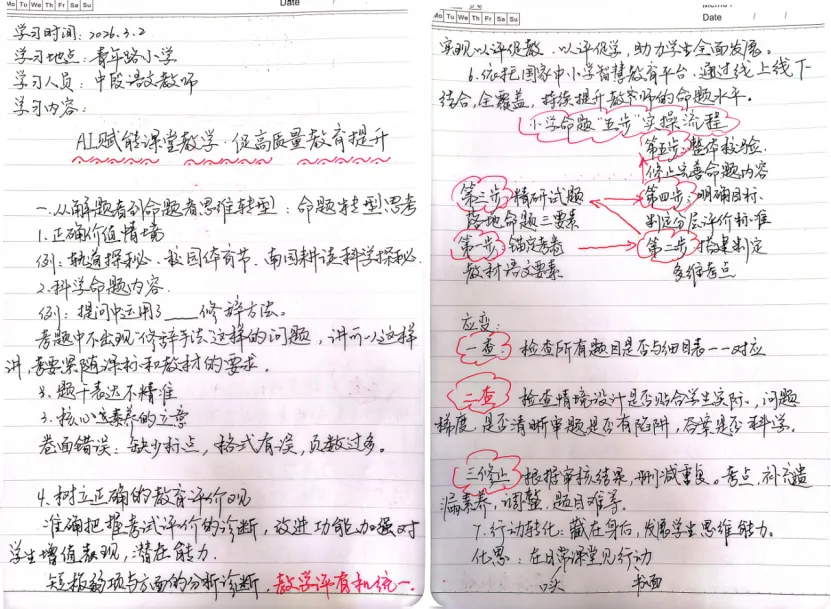 Mo Tu We Th Fr Sa Su
Date
学习时间：2026.3.2
学习地点：青年路小学
学习人员：中段语文教师
学习内容：
AI赋能课堂教学·促高质量教育提升
一.从解题者到命题者思维转型：命题转型思考
1.正确价值情境
例：轨道探秘、校园体育节、南国耕读科学探秘.
2.科学命题内容.
例：提问中运用了____修辞方法。
考题中不出现修辞手法这样的问题，讲可以这样
讲，考要紧随课标和教材的要求。
3.题干表达不精准
3.核心素养的立意
卷面错误：缺少标点，格式有误，页数过多。
4.树立正确的教育评价观
准确把握考试评价的诊断，改进功能加强对
学生增值表现，潜在能力.
短板弱项与方面的分析诊断，教学评有机统一.
Mo Tu We Th Fr Sa Su
Date / /
实现以评促教、以评促学，助力学生全面发展。
6.依托国家中小学智慧教育平台，通过线上线下
结合，全覆盖，持续提升教师的命题水平。
小学命题"五步"实操流程
第五步：整体校验.
修正完善命题内容
第三步：精研试题 第四步：明确目标.
落地命题三要素 制定分层评价标准
第一步：锚定考卷 第二步：搭建制定
教材语文要素 多维考点
应变：
一查：检查所有题目是否与细目表一一对应
二查 检查情境设计是否贴合学生实际、问题
梯度，是否清晰审题是否有陷阱，答案是否科学.
三修正 根据审核结果，删减重复。考点，补充遗
漏素养，调整，题目难易。
7.行动转化：藏在身后，发展学生思维能力.
化思：在日常课堂见行动
口头 书面